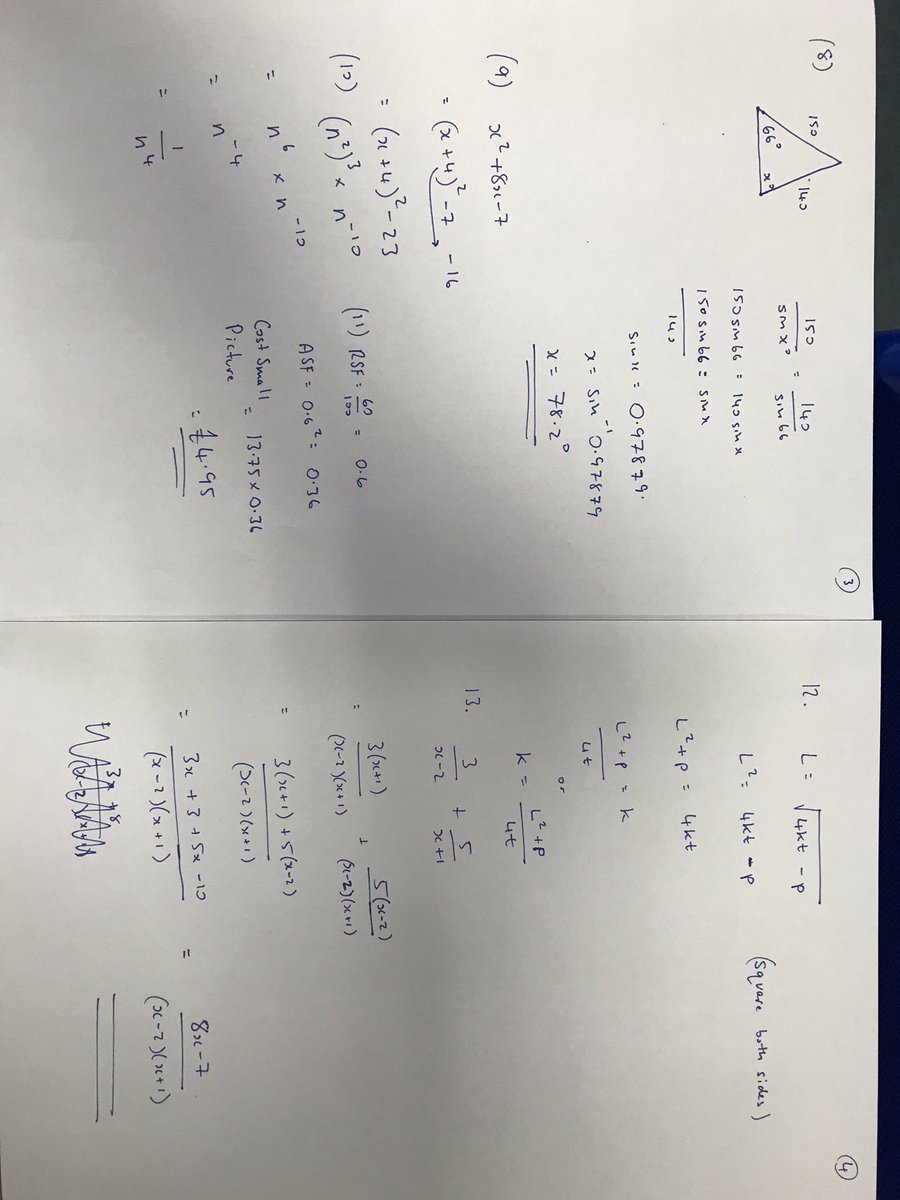 3
(8)
150
140
66°
x°
150/sin x° = 140/sin 66
150 sin 66 = 140 sin x
150 sin 66/140 = sin x
sin x = 0.97879.
x = sin⁻¹ 0.97879
x = 78.2°
(9) x² + 8x - 7
= (x + 4)² - 7 - 16
= (x + 4)² - 23
(10) (n²)³ × n⁻¹⁰
= n⁶ × n⁻¹⁰
= n⁻⁴
= 1/n⁴
(11) RSF = 60/100 = 0.6
ASF = 0.6² = 0.36
Cost Small = 13.75 × 0.36
Picture
= £4.95
4
12. L = √(4kt - p)
L² = 4kt - p (square both sides)
L² + p = 4kt
L² + p/4t = k
or
k = L² + p/4t
13. 3/x-2 + 5/x+1
= 3(x+1)/(x-2)(x+1) + 5(x-2)/(x-2)(x+1)
= 3(x+1) + 5(x-2)/(x-2)(x+1)
= 3x + 3 + 5x - 10/(x-2)(x+1) = 8x - 7/(x-2)(x+1)